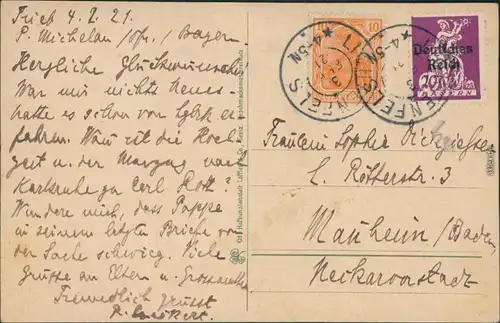 4. 2. 21.
P. Michelau / Ofr. / Bayern
Herzliche Glückwünsche
War mir nichts Neues
hatte es schon von
fahren. Wann ist die Hoch
zeit u. der Umzug nach
Karlsruhe zu Carl Rott?
Wundere mich, dass Poppe
in seinem letzten Briefe von
der Sache schwieg. Viele
Grüsse an Eltern u.
Freundlich grüsst
Fräulein Sophie
L. Rötterstr. 3
Manheim / Baden
Neckarvorstadt
10
Deutsches
Reich
20
BAYERN
4-5N